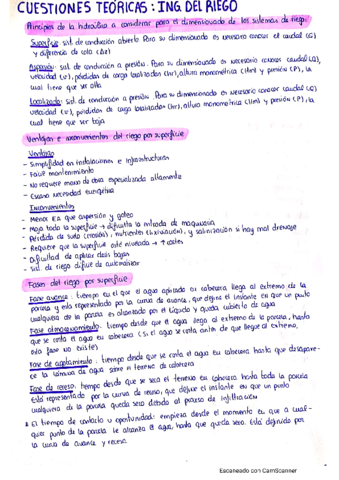 CUESTIONES TEÓRICAS: ING. DEL RIEGO
Principios de la hidráulica a considerar para el dimensionado de los sistemas de riego
Superficie: sist. de conducción abierto. Para su dimensionado es necesario conocer el caudal (Q)
y diferencia de cota (Δz)
Aspersión: sist. de conducción a presión. Para su dimensionado es necesario conocer caudal (Q),
velocidad (v), pérdidas de carga localizadas (hr), altura manométrica (Hm) y presión (P), la
cual tiene que ser alta
Localizado: sist. de conducción a presión. Para su dimensionado es necesario conocer caudal (Q),
velocidad (v), pérdidas de carga localizadas (hr), altura manométrica (Hm) y presión (P), la
cual tiene que ser baja
Ventajas e inconvenientes del riego por superficie
Ventajas
- Simplicidad en instalaciones e infraestructuras
- Fácil mantenimiento
- No requiere mano de obra especializada altamente
- Escasa necesidad energética
Inconvenientes
- Menor EA que aspersión y goteo
- Moja toda la superficie → dificulta la entrada de maquinaria
- Pérdida de suelo (erosión), nutrientes (lixiviación), y salinización si hay mal drenaje
- Requiere que la superficie esté nivelada → ↑ costes
- Dificultad de aplicar dosis bajas
- Sist. de riego difícil de automatizar
Fases del riego por superficie
Fase avance: tiempo en el que el agua aplicada en cabecera llega al extremo de la
parcela y está representado por la curva de avance, que define el instante en que un punto
cualquiera de la parcela es alcanzado por el líquido y queda cubierto de agua
Fase almacenamiento: tiempo desde que el agua llega al extremo de la parcela, hasta
que se corta el agua en cabecera (Si el agua se corta antes de que llegue al extremo,
esta fase no existe)
Fase de agotamiento: tiempo desde que se corta el agua en cabecera hasta que desapare-
ce la lámina de agua sobre el terreno de cabecera
Fase de receso: tiempo desde que se seca el terreno en cabecera hasta toda la parcela
Está representado por la curva de receso, que define el instante en que un punto
cualquiera de la parcela queda seco debido al proceso de infiltración
* El tiempo de contacto u oportunidad: empieza desde el momento en que a cual-
quier punto de la parcela le alcanza el agua, hasta que queda seco. Está definido por
la curva de avance y receso.
Escaneado con CamScanner